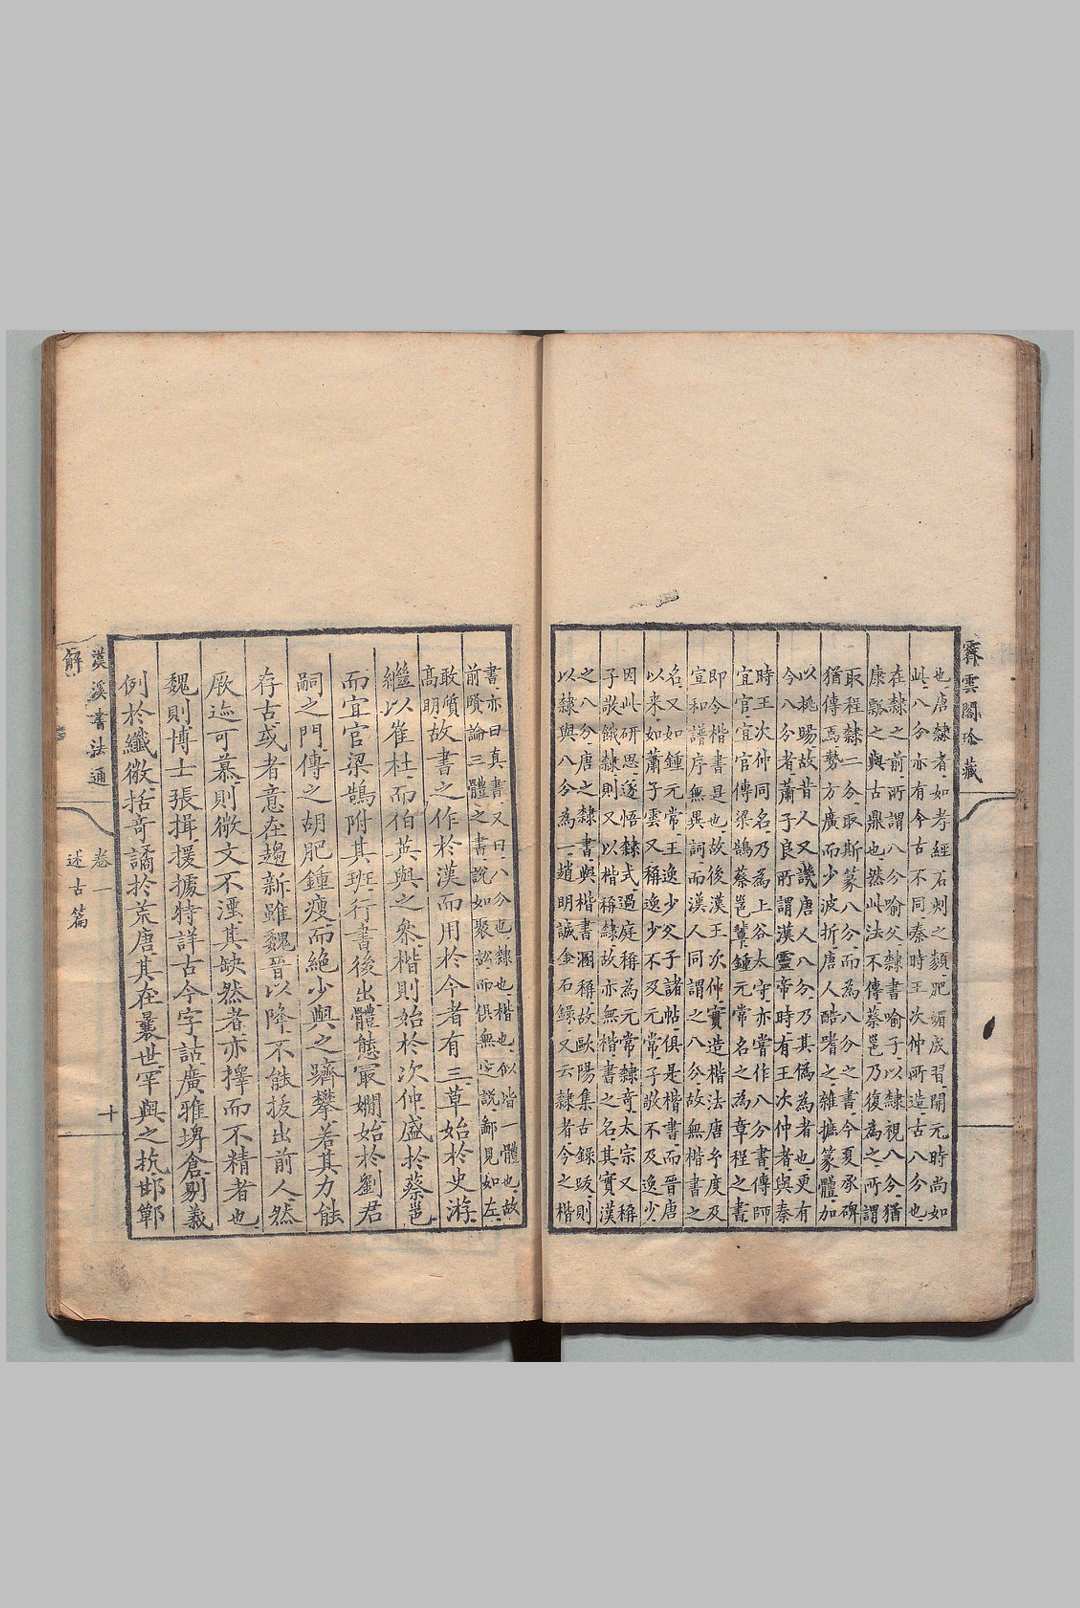 霽雲閣珍藏
也唐隸者如孝經石刻之類肥媚成習開元時尚如
此八分亦有今古不同秦時王次仲所造古八分也
在隸之前所謂八分喻父隸書喻子以隸視八分猶
康瓠之與古鼎也然此法不傳蔡邕乃復為之所謂
取程隸二分取斯篆八分而為八分之書今夏承碑
猶傳焉勢方廣而少波折唐人酷嗜之雜摭篆體加
以挑踢故昔人又譏唐人八分乃其偽為者也更有
今八分者蕭子良所謂漢靈帝時有王次仲者與秦
時王次仲同名乃為上谷太守亦嘗作八分書傳師
宜官宜官傳梁鵠蔡邕輩鍾元常名之為章程之書
即今楷書是也故後漢王次仲實造楷法唐年度及
宣和譜序無異詞而漢人同謂之八分故無楷書之
名又如鍾元常王逸少父子諸帖俱是楷書而晉唐
以來如蕭子雲又稱逸少不及元常子敬不及逸少
因此研思遂悟隸式過庭稱為元常隸奇太宗又稱
子敬餓隸則又以楷稱隸故亦無楷書之名其實漢
之八分唐之隸書與楷書溷稱故歐陽集古錄跋則
以隸與八分為一趙明誠金石錄又云隸者今之楷
書亦曰真書又曰八分也隸也楷也似皆一體也故
前賢論三體之書說如聚訟而俱無定說鄙見如左
敢質
高明
故書之作於漢而用於今者有三草始於史游
繼以崔杜而伯英與之參楷則始於次仲盛於蔡邕
而宜官梁鵠附其班行書後出體態最嫺始於劉君
嗣之門傳之胡肥鍾瘦而絕少與之躋攀若其力能
存古或者意在趨新雖魏晉以降不能拔出前人然
厥迹可慕則微文不湮其缺然者亦擇而不精者也
魏則博士張揖援據特詳古今字詁廣雅埤倉剔義
例於纖微括奇譎於荒唐其在曩世罕與之抗邯鄲
漢溪書法通
解
卷一
述古篇
十